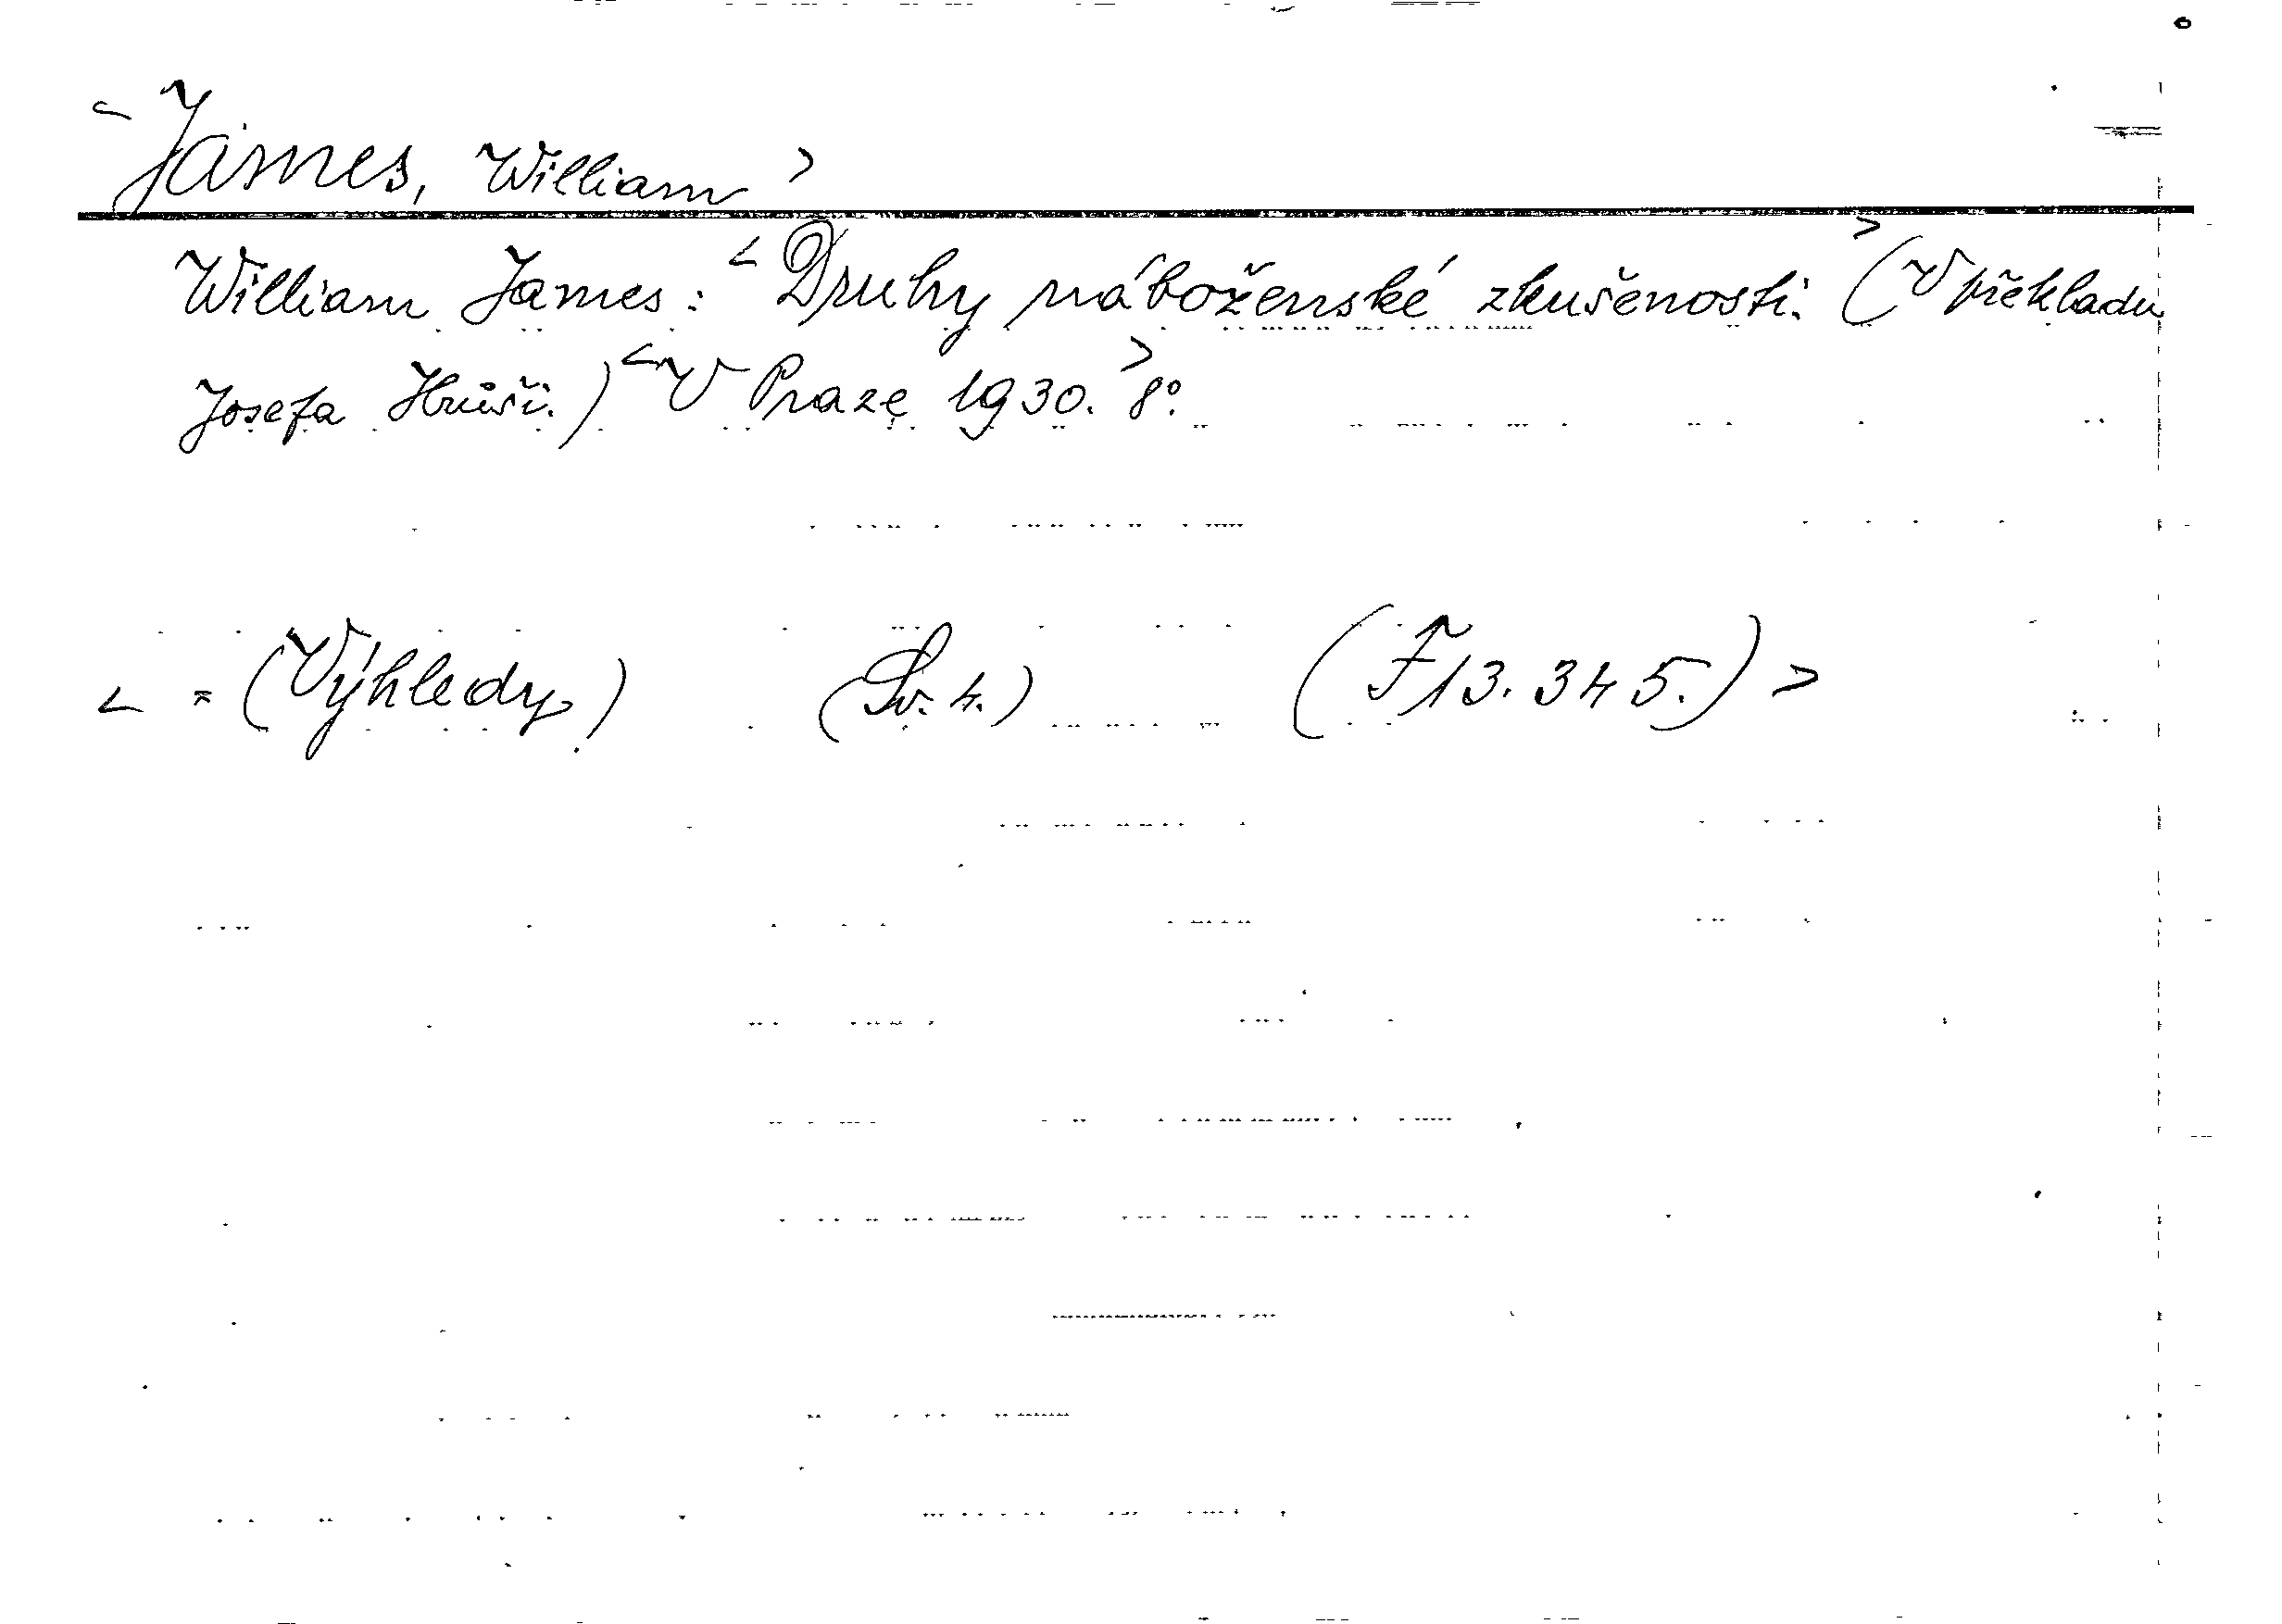 <James, William>
William James: <Druhy náboženské zkušenosti.> (V překladu
Josefa Hrůši.) <V Praze 1930.> 8°.
< = (Výhledy.) (Sv. 4.) (F 13.345.) >